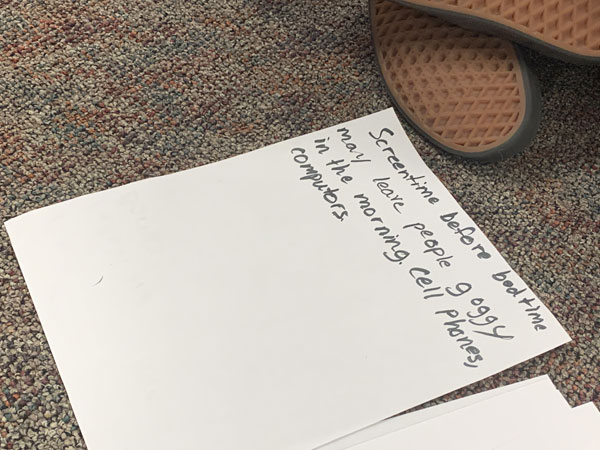 Screentime before bedtime
may leave people goggy
in the morning. Cell phones,
computors.